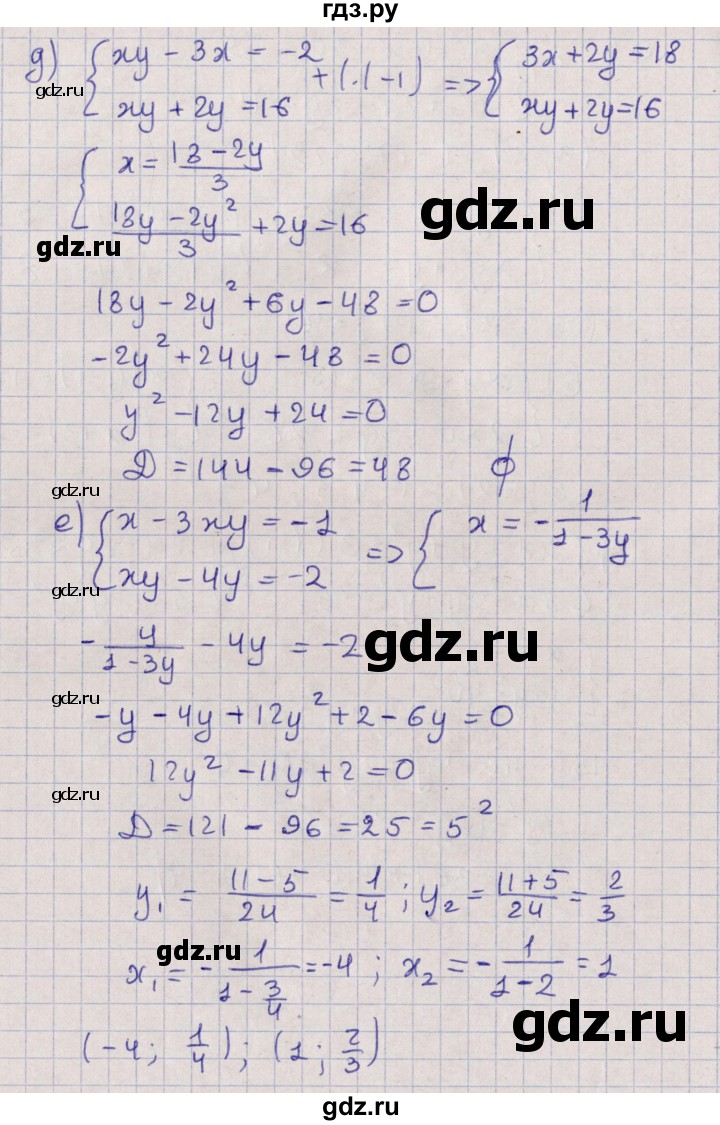 гдз.ру
д) { xy - 3x = -2
xy + 2y = 16 +(·(-1) => { 3x + 2y = 18
xy + 2y = 16
{ x = (18 - 2y)/3
(18y - 2y²)/3 + 2y = 16
gdz.ru
gdz.ru
gdz.ru
18y - 2y² + 6y - 48 = 0
-2y² + 24y - 48 = 0
y² - 12y + 24 = 0
Д = 144 - 96 = 48 ϕ
gdz.ru
е) { x - 3xy = -1
xy - 4y = -2 => { x = - 1/(1 - 3y)
gdz.ru
- y/(1 - 3y) - 4y = -2
gdz.ru
gdz.ru
-y - 4y + 12y² + 2 - 6y = 0
12y² - 11y + 2 = 0
gdz.ru
Д = 121 - 96 = 25 = 5²
y₁ = (11 - 5)/24 = 1/4 ; y₂ = (11 + 5)/24 = 2/3
gdz.ru
x₁ = - 1/(1 - 3/4) = -4 ; x₂ = - 1/(1 - 2) = 1
(-4 ; 1/4) ; (1 ; 2/3)
gdz.ru
gdz.ru